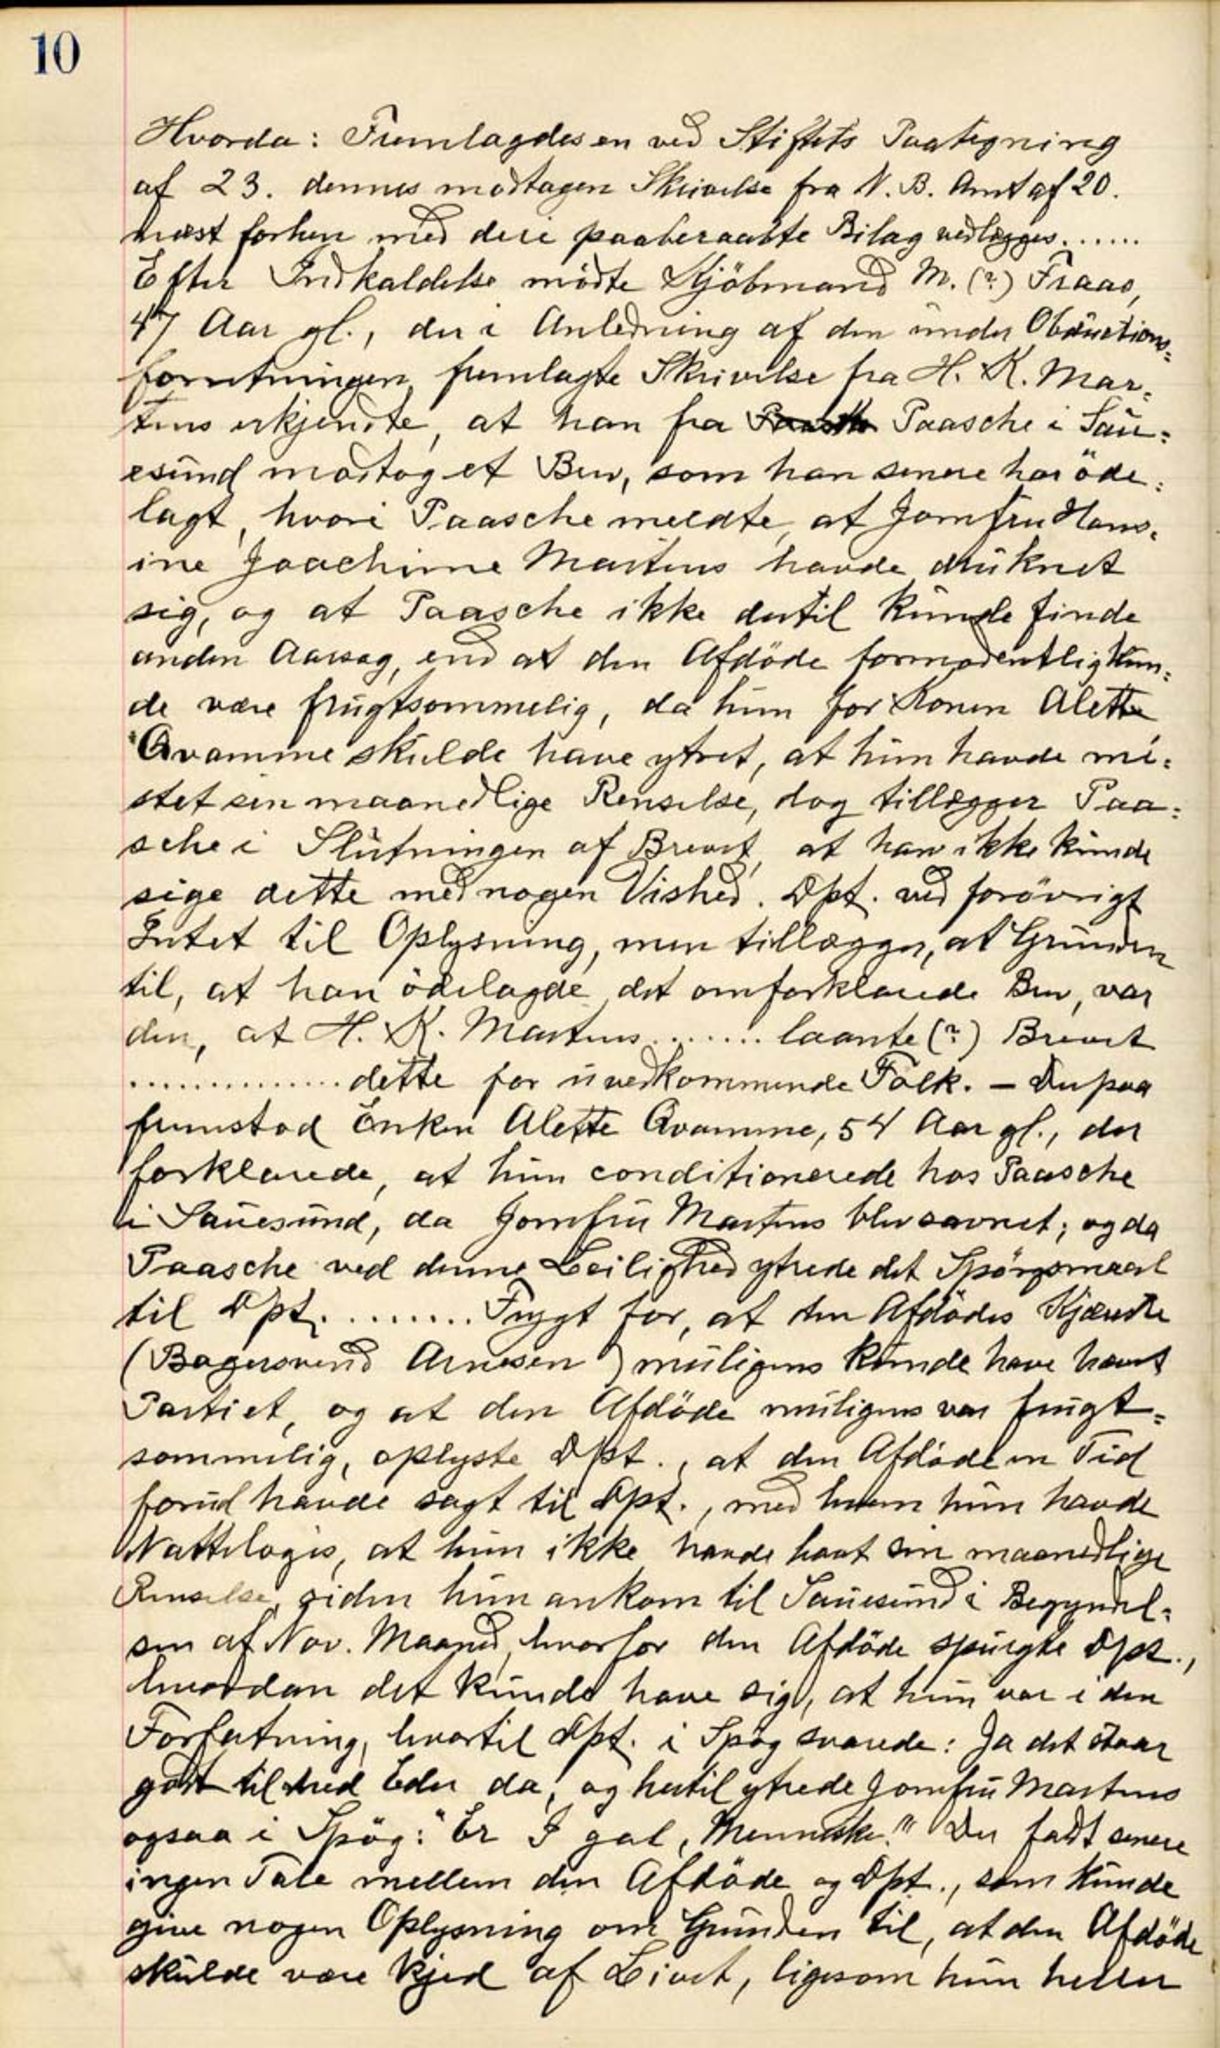 10
Hvorda: Fremlagdes en ved Stiftets Paategning
af 23. dennes modtagen Skrivelse fra N. B. Amt af 20.
næst forhen med deri paaberaabte Bilag vedlægges......
Efter Indkaldelse mödte Kjöbmand M. (?) Fraas,
47 Aar gl., der i Anledning af den under Obductions=
forretningen fremlagte Skrivelse fra H. K. Mar=
tens erkjendte, at han fra Paasche i Sau=
esund modtog et Brev, som han senere har öde=
lagt, hvori Paasche meldte, at Jomfru Hans=
ine Joachime Martens havde druknet
sig, og at Paasche ikke dertil kunde finde
anden Aarsag, end at den Afdöde formodentlig kun=
de være frugtsommelig, da hun for Konen Alette
Qvamme skulde have ytret, at hun havde mi=
stet sin maanedlige Renselse, dog tillægger Paa=
sche i Slutningen af Brevet, at han ikke kunde
sige dette med nogen Vished. Dpt. ved forövrigt
Intet til Oplysning, men tillægger, at Grunden
til, at han ödelagde det omforklarede Brev, var
den, at H. K. Martens ....... laante (?) Brevet
.............. dette for uvedkommende Folk. – Derpaa
fremstod Enken Alette Qvamme, 54 Aar gl., der
forklarede, at hun conditionerede hos Paasche
i Sauesund, da Jomfru Martens blev savnet; og da
Paasche ved denne Leilighed ytrede det Spörgsmaal
til Dpt. ........ Frygt for, at den Afdödes Kjæreste
(Bagersvend Arnesen) muligens kunde have hævet
Partiet, og at den Afdöde muligens var frugt=
sommelig, oplyste Dpt., at den Afdöde en Tid
forud havde sagt til Dpt., med hvem hun havde
Nattelogis, at hun ikke havde havt sin maanedlige
Renselse, siden hun ankom til Sauesund i Begyndel=
sen af Nov. Maaned, hvorfor den Afdöde spurgte Dpt.,
hvordan det kunde have sig, at hun var i den
Forfatning, hvortil Dpt. i Spög svarede: Ja det staar
godt til med Eder da, og hertil ytrede Jomfru Martens
ogsaa i Spög: "Er I gal, Menneske." Der faldt senere
ingen Tale mellem den Afdöde og Dpt., som kunde
give nogen Oplysning om Grunden til, at den Afdöde
skulde være kjed af Livet, ligesom hun heller